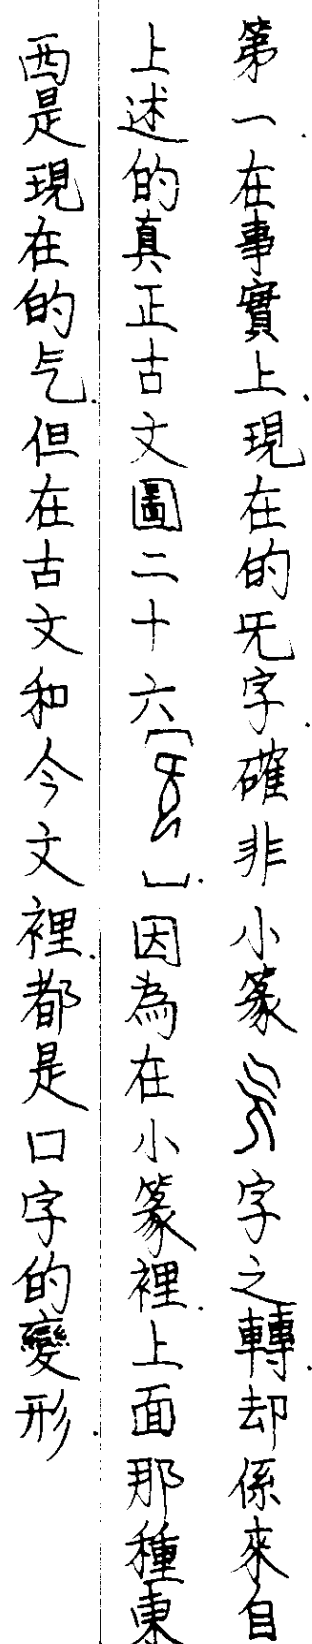 第一.在事實上.現在的旡字.確非小篆字之轉.却係來自
上述的真正古文圖二十六[ ].因為在小篆裡.上面那種東
西是現在的气.但在古文和今文裡.都是口字的變形.